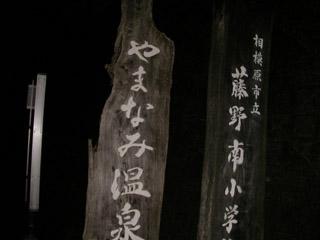 相模原市立
藤野南小学
やまなみ温泉